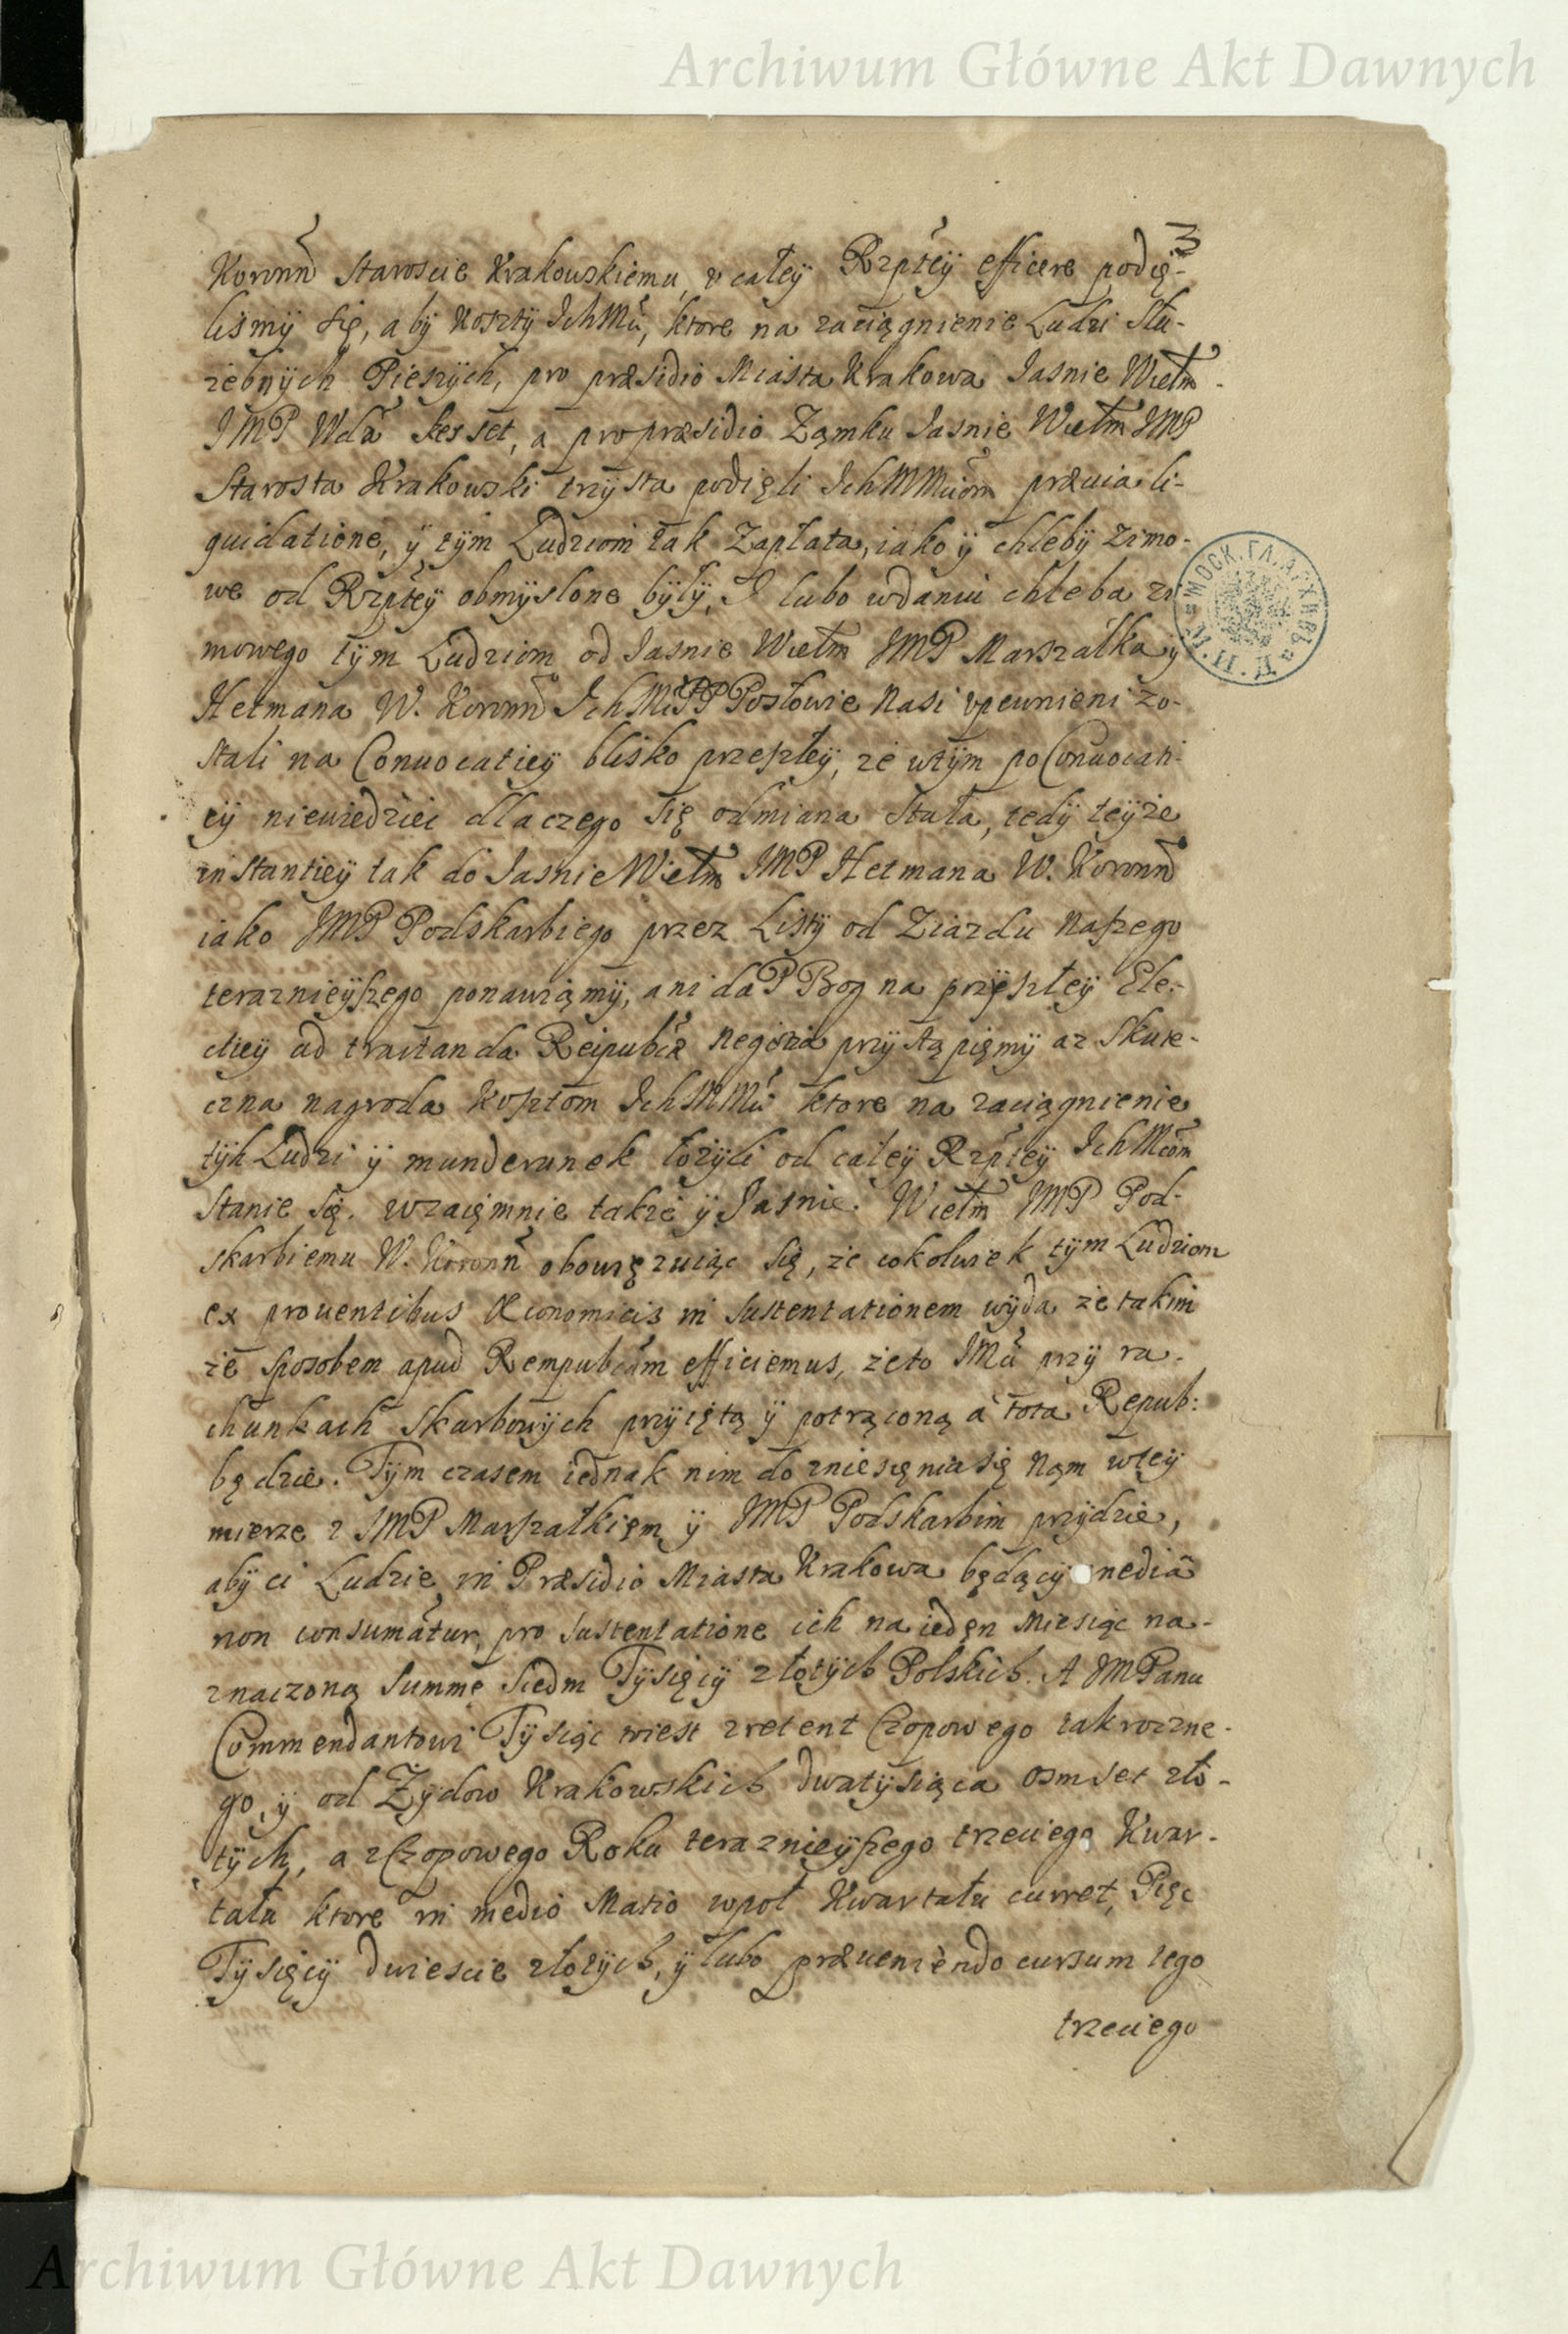 Archiwum Główne Akt Dawnych
3
Koronn Staroscie Krakowskiemu, v całey Rzptey efficere podię-
lismÿ się, abÿ kosztÿ IchMć, ktore na zaciągnienie Ludzi Słu-
żebnÿch Pieszÿch, pro præsidio Miasta Krakowa Jasnie Wielm
JMP Wda szesset, a pro præsidio Zamku Jasnie Wielm JMP
Starosta Krakowski trzÿsta podięli IchMMciom prævia li-
quidatione, ÿ tÿm Ludziom tak Zapłata, iako ÿ chlebÿ zimo-
we od Rzptey obmÿslone bÿłÿ, I lubo wdaniu chleba zi
mowego tÿm Ludziom od Jasnie Wielm JMP Marszałka ÿ
Hetmana W. Koronn IchMćPP Posłowie Nasi vpewnieni zo-
stali na Conuocatieÿ blisko przeszłeÿ, że wtÿm po Conuocati-
eÿ niewiedziec dlaczego się odmiana stała, tedÿ teÿże
instantieÿ tak do Jasnie Wielm JMP Hetmana W. Koronn
iako JMP Podskarbiego przez Listÿ od Ziazdu naszego
teraznieÿszego ponawiamÿ, ani da P Bog na przÿszłeÿ Ele-
ctieÿ ad tractanda Reipublcæ negotia przÿstąpięmÿ az skute-
czna nagroda kosztom IchMMć ktore na zaciągnienie
tÿch Ludzi ÿ munderunek łożÿli od całeÿ Rzpteÿ IchMciom
stanie się. wzaięmnie także ÿ Jasnie Wielm JMP Pod-
skarbiemu W. Koronn obowięzuiąc się, że cokolwiek tÿm Ludziom
ex prouentibus Œconomicis in sustentationem wÿda że takim
że sposobem apud Rempublcam efficiemus, że to JMći przÿ ra-
chunkach skarbowÿch przÿiętą ÿ potrąconą à tota Repub:
będzie. Tÿm czasem iednak nim do zniesięnia się nąm wteÿ
mierze z JMP Marszałkięm ÿ JMP Podskarbim przÿdzie,
abÿ ci Ludzie in Præsidio Miasta Krakowa będącÿ inediâ
non consumatur, pro sustentatione ich na iedęn Miesiąc na-
znaczoną summę siedm Tÿsięcÿ złotÿch Polskich. A JMPanu
Commendantowi Tÿsiąc iest z retent Czopowego zakroczne-
go, ÿ od Zÿdow Krakowskich dwatÿsiąca osmset zło-
tÿch, a z Czopowego Roku teraznieÿszego trzeciego Kwar-
tału ktore in medio Martio wpoł Kwartału curret, Pięc
Tÿsięcÿ dwiescie złotÿch, ÿ lubo præueniendo cursum tego
trzeciego
Archiwum Główne Akt Dawnych